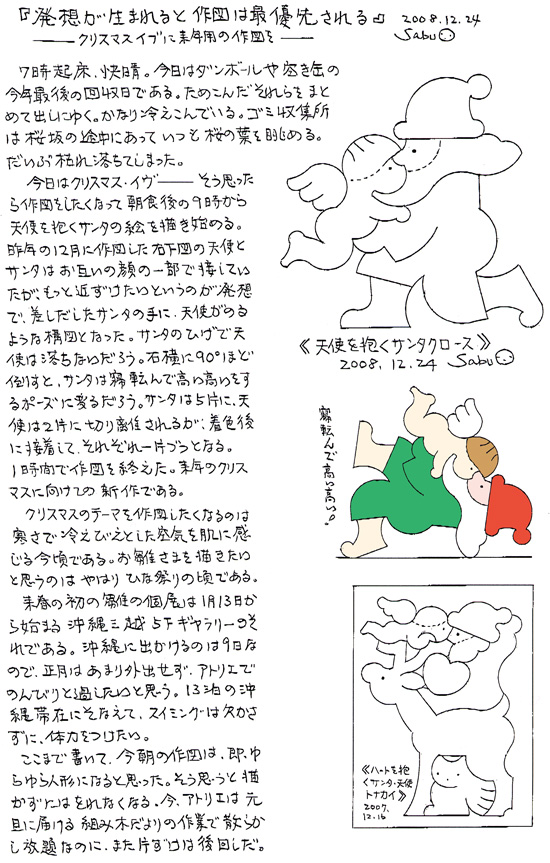 『発想が生まれると作図は最優先される』 2008.12.24
——クリスマスイブに来年用の作図を—— Sabu
7時起床、快晴。今日はダンボールや空き缶の
今年最後の回収日である。ためこんだそれらをまと
めて出しにゆく。かなり冷えこんでいる。ゴミ収集所
は桜坂の途中にあっていつも桜の葉を眺める。
だいぶ枯れ落ちてしまった。
今日はクリスマス・イヴ——そう思った
ら作図をしたくなって朝食後の9時から
天使を抱くサンタの絵を描き始める。
昨年の12月に作図した右下図の天使と
サンタはお互いの顔の一部で接してい
たが、もっと近ずけたいというのが発想
で、差しだしたサンタの手に、天使がのる
ような構図となった。サンタのひげで天
使は落ちないだろう。右横に90°ほど
倒すと、サンタは寝転んで高い高いをす
るポーズに変るだろう。サンタは5片に、天
使は2片に切り離されるが、着色後
に接着して、それぞれ一片づつとなる。
1時間で作図を終えた。来年のクリス
マスに向けての新作である。
クリスマスのテーマを作図したくなるのは
寒さで冷えびえとした空気を肌に感
じる今頃である。お雛さまを描きたい
と思うのはやはりひな祭りの頃である。
来春の初の雛の個展は1月13日か
ら始まる沖縄三越5Fギャラリーのそ
れである。沖縄に出かけるのは9日な
ので、正月はあまり外出せず、アトリエで
のんびりと過したいと思う。13泊の沖
縄滞在にそなえて、スイミングは欠かさ
ずに、体力をつけたい。
ここまで書いて、今朝の作図は、即、ゆ
らゆら人形になると思った。そう思うと描
かずにはをれなくなる。今、アトリエは元
旦に届ける組み木だよりの作業で散らか
し放題なのに、また片ずけは後回しだ。
《天使を抱くサンタクロース》
2008.12.24 Sabu
寝転んで高い高い。
《ハートを抱
くサンタ・天使
トナカイ》
2007.
12.16